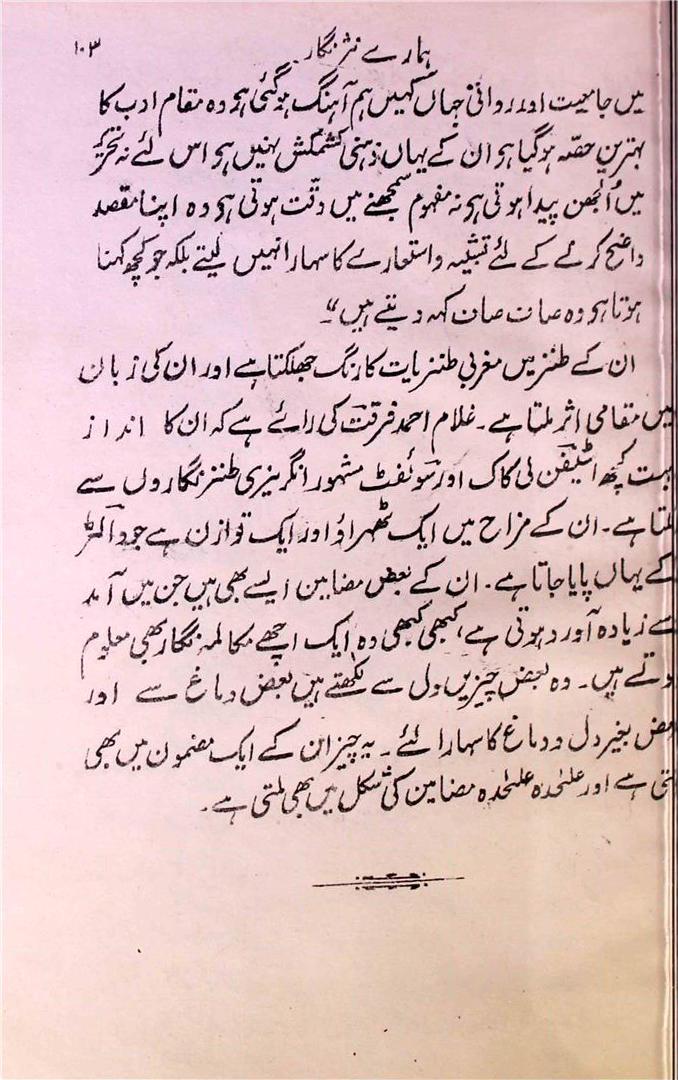 ہمارے نثر نگار ۱۰۳
میں جامعیت اور روانی جہاں کہیں ہم آہنگ ہو گئی ہو وہ مقام ادب کا
بہترین حصّہ ہو گیا ہو ان کے یہاں ذہنی کشمکش نہیں ہو اس لئے نہ تحریر
میں اُلجھن پیدا ہوتی ہو نہ مفہوم سمجھنے میں دقّت ہوتی ہو وہ اپنا مقصد
واضح کرنے کے لئے تشبیہ و استعارے کا سہارا نہیں لیتے بلکہ جو کچھ کہنا
ہوتا ہو وہ صاف صاف کہہ دیتے ہیں"۔
ان کے طنز میں مغربی طنزیات کا رنگ جھلکتا ہے اور ان کی زبان
میں مقامی اثر ملتا ہے۔ غلام احمد فرقتؔ کی رائے ہے کہ ان کا انداز
بہت کچھ اسٹیفن لی کاک اور سوئفٹ مشہور انگریزی طنز نگاروں سے
ملتا ہے۔ ان کے مزاح میں ایک ٹھہراؤ اور ایک توازن ہے جو والٹر
کے یہاں پایا جاتا ہے۔ ان کے بعض مضامین ایسے بھی ہیں جن میں آمد
سے زیادہ آورد ہوتی ہے، کبھی کبھی وہ ایک اچھے مکالمہ نگار بھی معلوم
ہوتے ہیں۔ وہ بعض چیزیں دل سے لکھتے ہیں بعض دماغ سے اور
بعض بغیر دل و دماغ کا سہارا لئے۔ یہ چیز ان کے ایک مضمون میں بھی
ملتی ہے اور علیٰحدہ علیٰحدہ مضامین کی شکل میں بھی ملتی ہے۔